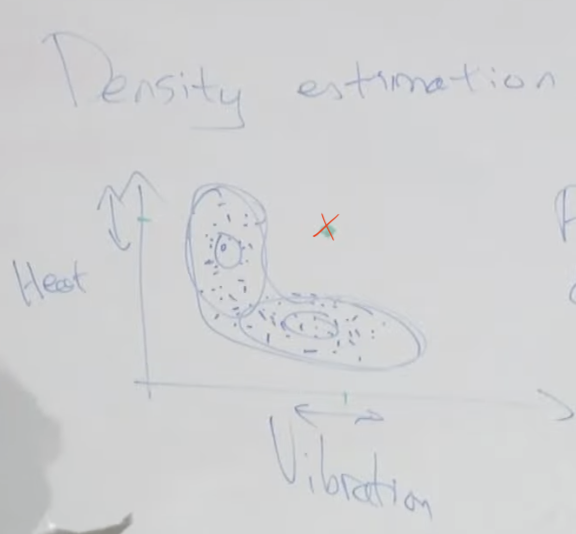 Density estimation
Heat
Vibration